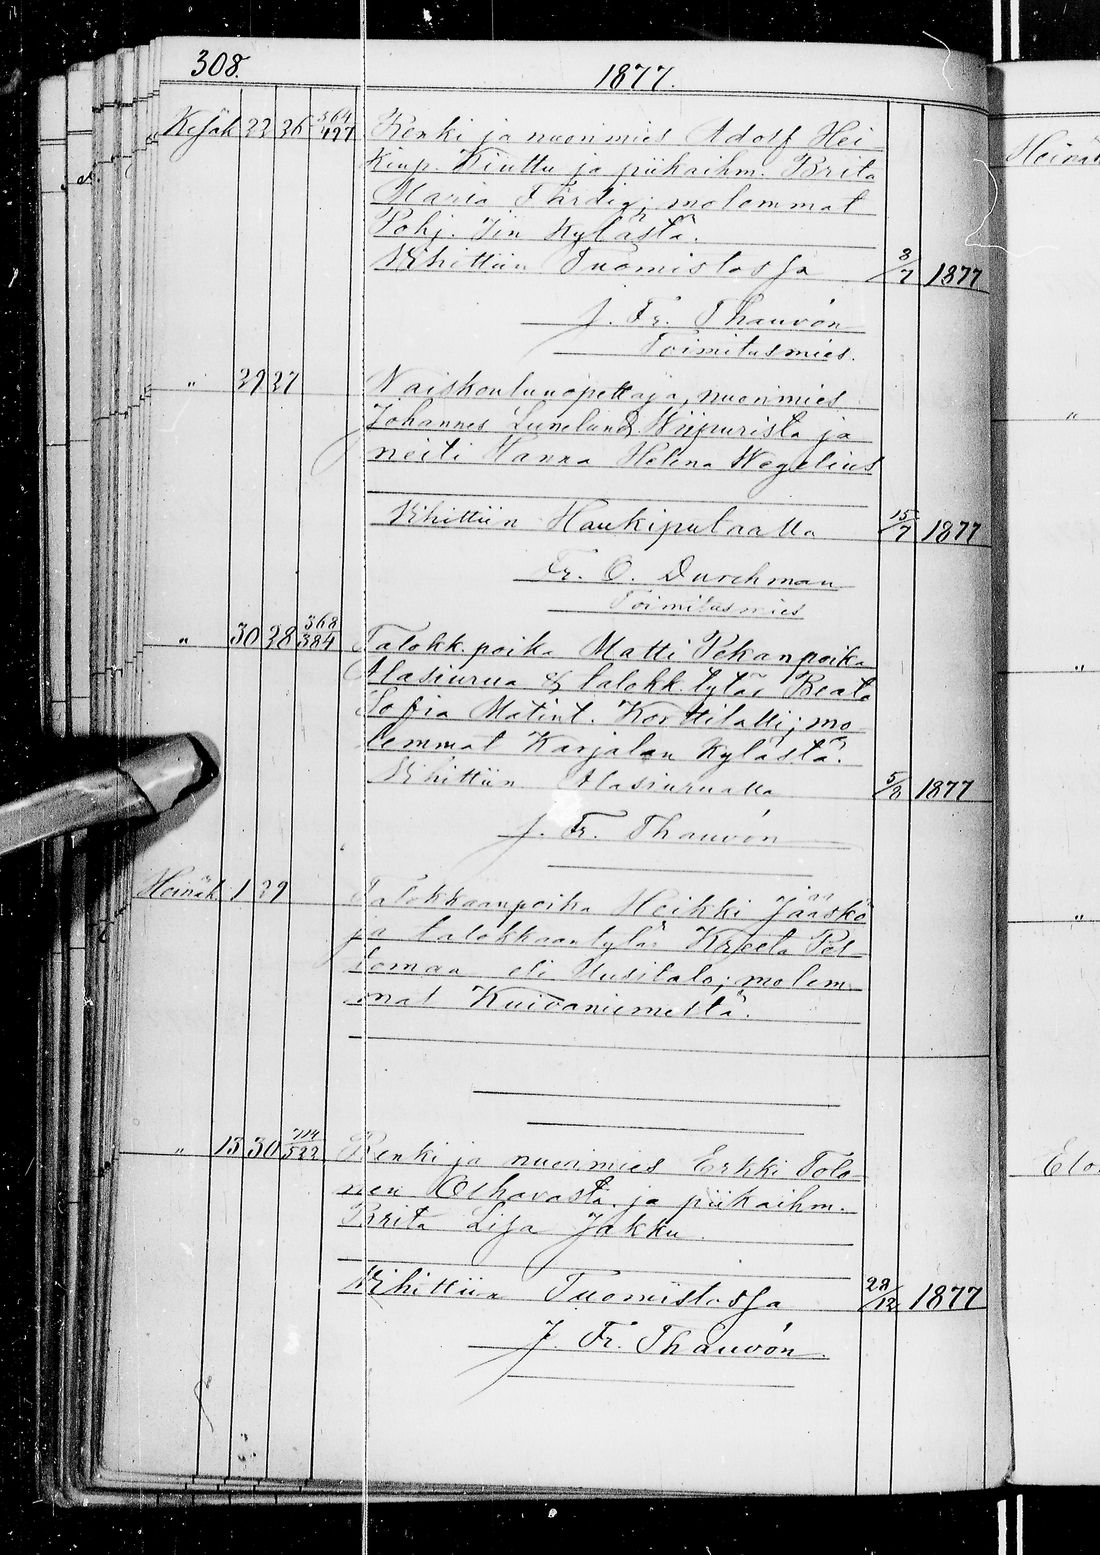 308.
1877.
Kesäk 23 26 364/427 Renki ja nuorimies Adolf Hei
kinp. Kiuttu ja piikaihm. Brita
Maria Färdig; molemmat
Pohj. Iin kylästä.
Vihittiin Tuomistossa 8/7 1877
J. Fr. Thauvón
Toimitusmies.
" 29 27 Naiskoulunopettaja, nuorimies
Johannes Lunelund Wiipurista ja
neiti Hanna Helena Wegelius
Vihittiin Haukiputaalla 15/7 1877
Fr. O. Durchman
Toimitusmies
" 30 28 368/384 Talokk. poika Matti Pekanpoika
Alasiurua & talokk. tytär Beata
Sofia Matint. Korttilalli; mo
lemmat Karjalan kylästä.
Vihittiin Alasiurualla 5/8 1877
J. Fr. Thauvón
Heinäk. 1 29 Talokkaanpoika Heikki Jääskö
ja talokkaantytär Kreeta Pel
tomaa eli Uusitalo; molem
mat Kuivaniemeltä.
" 13 30 522 Renki ja nuorimies Erkki Tolo
nen Olhavasta ja piikaihm.
Brita Lisa Jakku.
Vihittiin Tuomistossa 28/12 1877
J. Fr. Thauvón
Heinäk
"
"
"
Elo